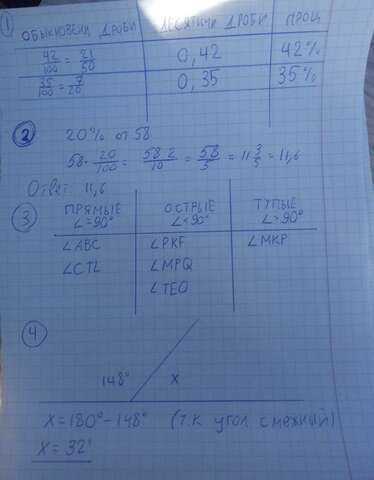 1) ОБЫКНОВЕН ДРОБИ ДЕСЯТИЧН ДРОБИ ПРОЦ
42/100 = 21/50 0,42 42%
35/100 = 7/20 0,35 35%
2 20% от 58
58 · 20/100 = 58·2/10 = 58/5 = 11 3/5 = 11,6
Ответ 11,6
3 ПРЯМЫЕ ОСТРЫЕ ТУПЫЕ
∠=90° ∠<90° ∠>90°
∠ABC ∠PKF ∠MKP
∠CTL ∠MPQ
∠TEQ
4
148° x
x = 180° - 148° (т.к угол смежный)
x = 32°